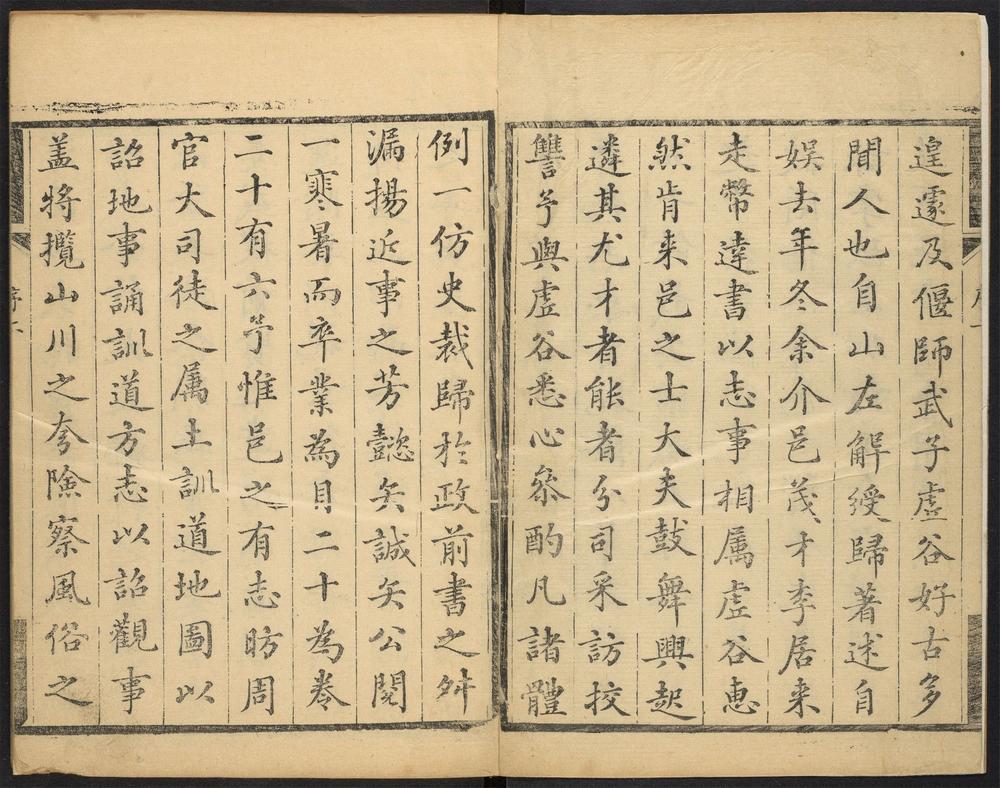 遑遽及偃師武子虛谷好古多
聞人也自山左解綬歸著述自
娛去年冬余介邑茂才李居来
走幣達書以志事相属虛谷惠
然肯来邑之士大夫鼓舞興起
遴其尤才者能者分司采訪挍
讐予與虛谷悉心叅酌凡諸體
例一仿史裁歸於政前書之舛
漏揚近事之芳懿矣誠矣公閱
一寒暑而卒業為目二十為卷
二十有六予惟邑之有志昉周
官大司徒之属土訓道地圖以
詔地事誦訓道方志以詔觀事
盖將攬山川之夸險察風俗之